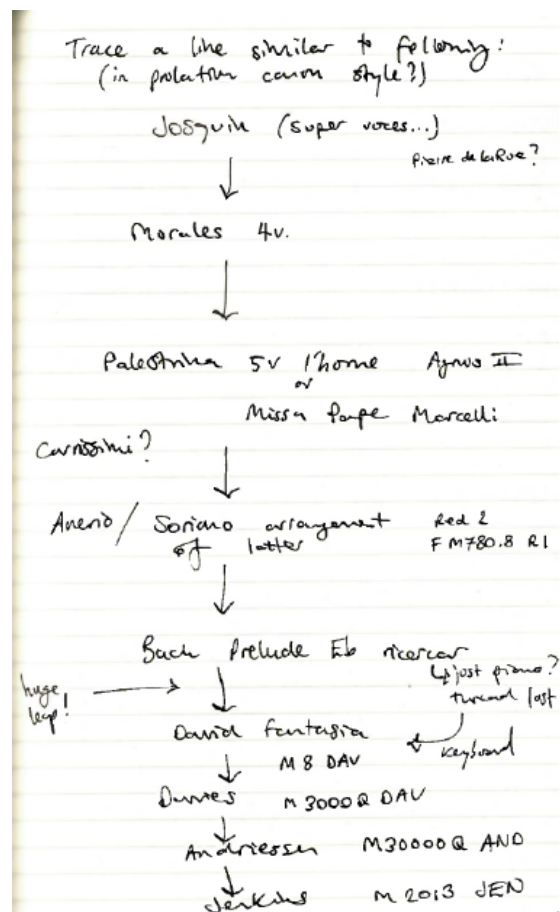 Trace a line similar to following:
(in prolation canon style?)
Josquin (super voces...)
Pierre de la Rue?
Morales 4v.
Palestrina 5v l'home Agnus II
or
Missa Pape Marcelli
Carissimi?
Anerio / Soriano arrangement Red 2
of latter F M780.8 R1
Bach Prelude Eb ricercar
↳ just piano?
huge
leap!
thread lost
David fantasia
keyboard
M 8 DAV
Davies M3000Q DAV
Andriessen M30000Q AND
Jenkins M 2013 JEN